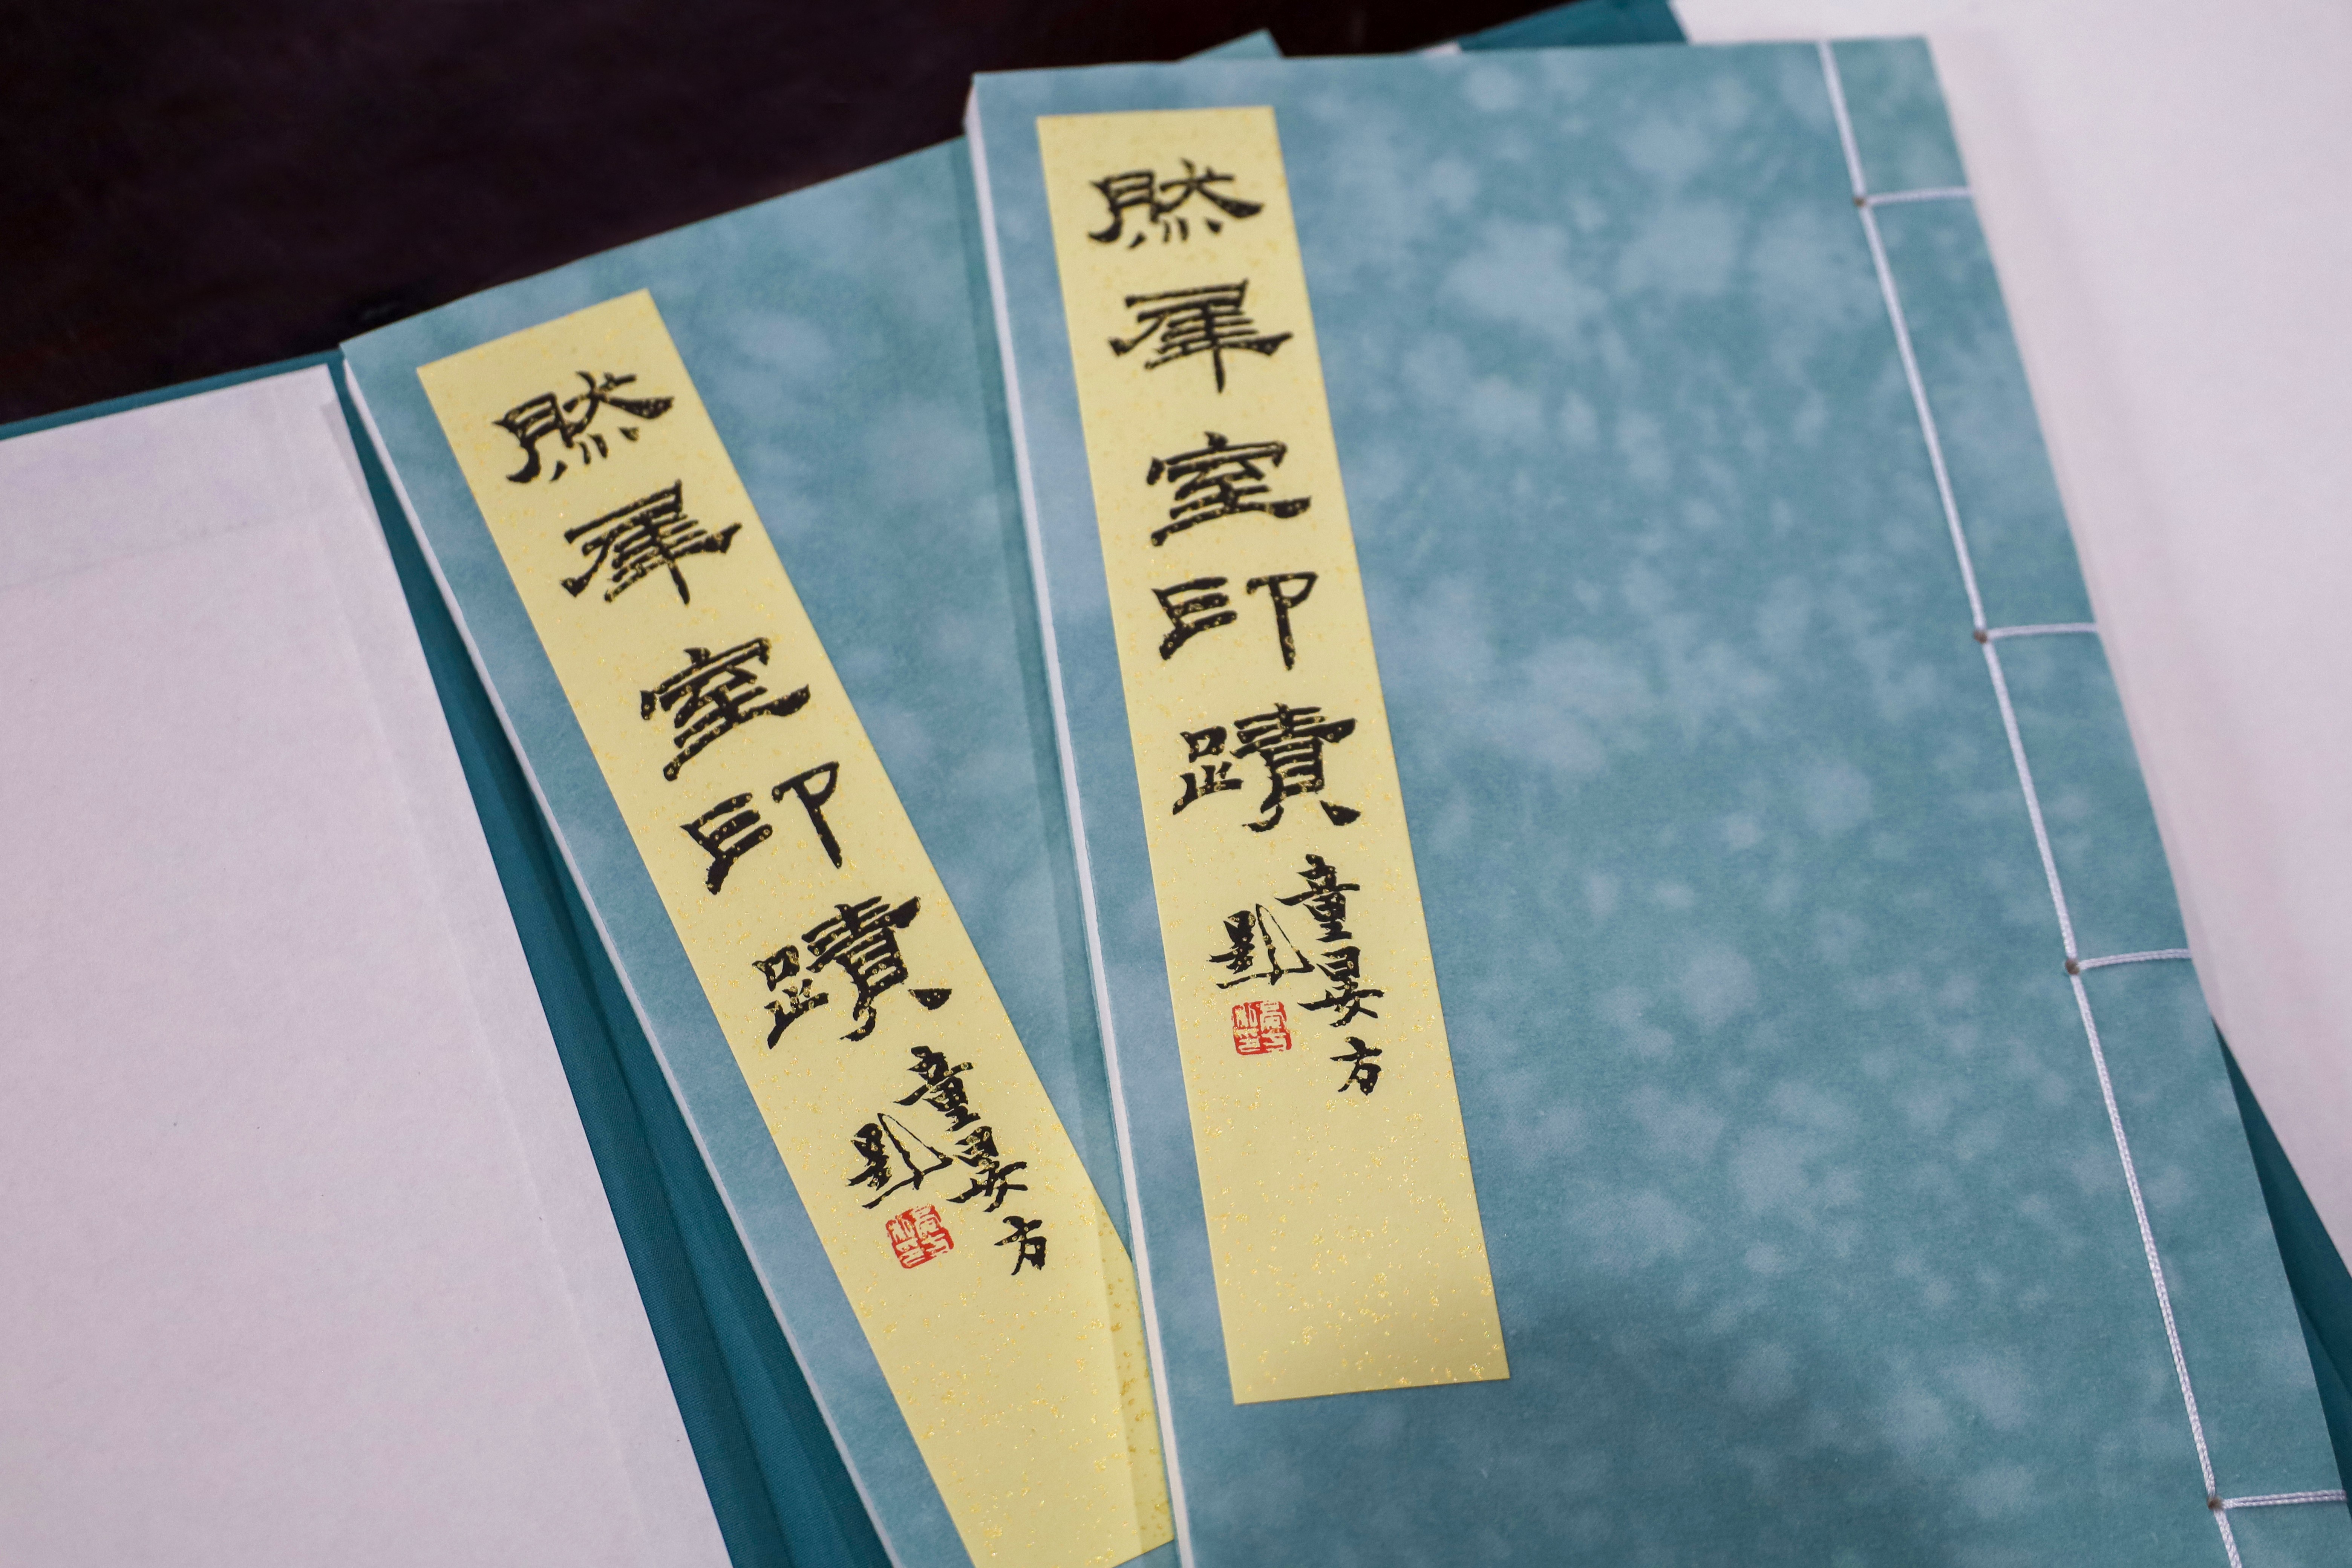 然犀室印蹟
童晏方
題
然犀室印蹟
童晏方
題